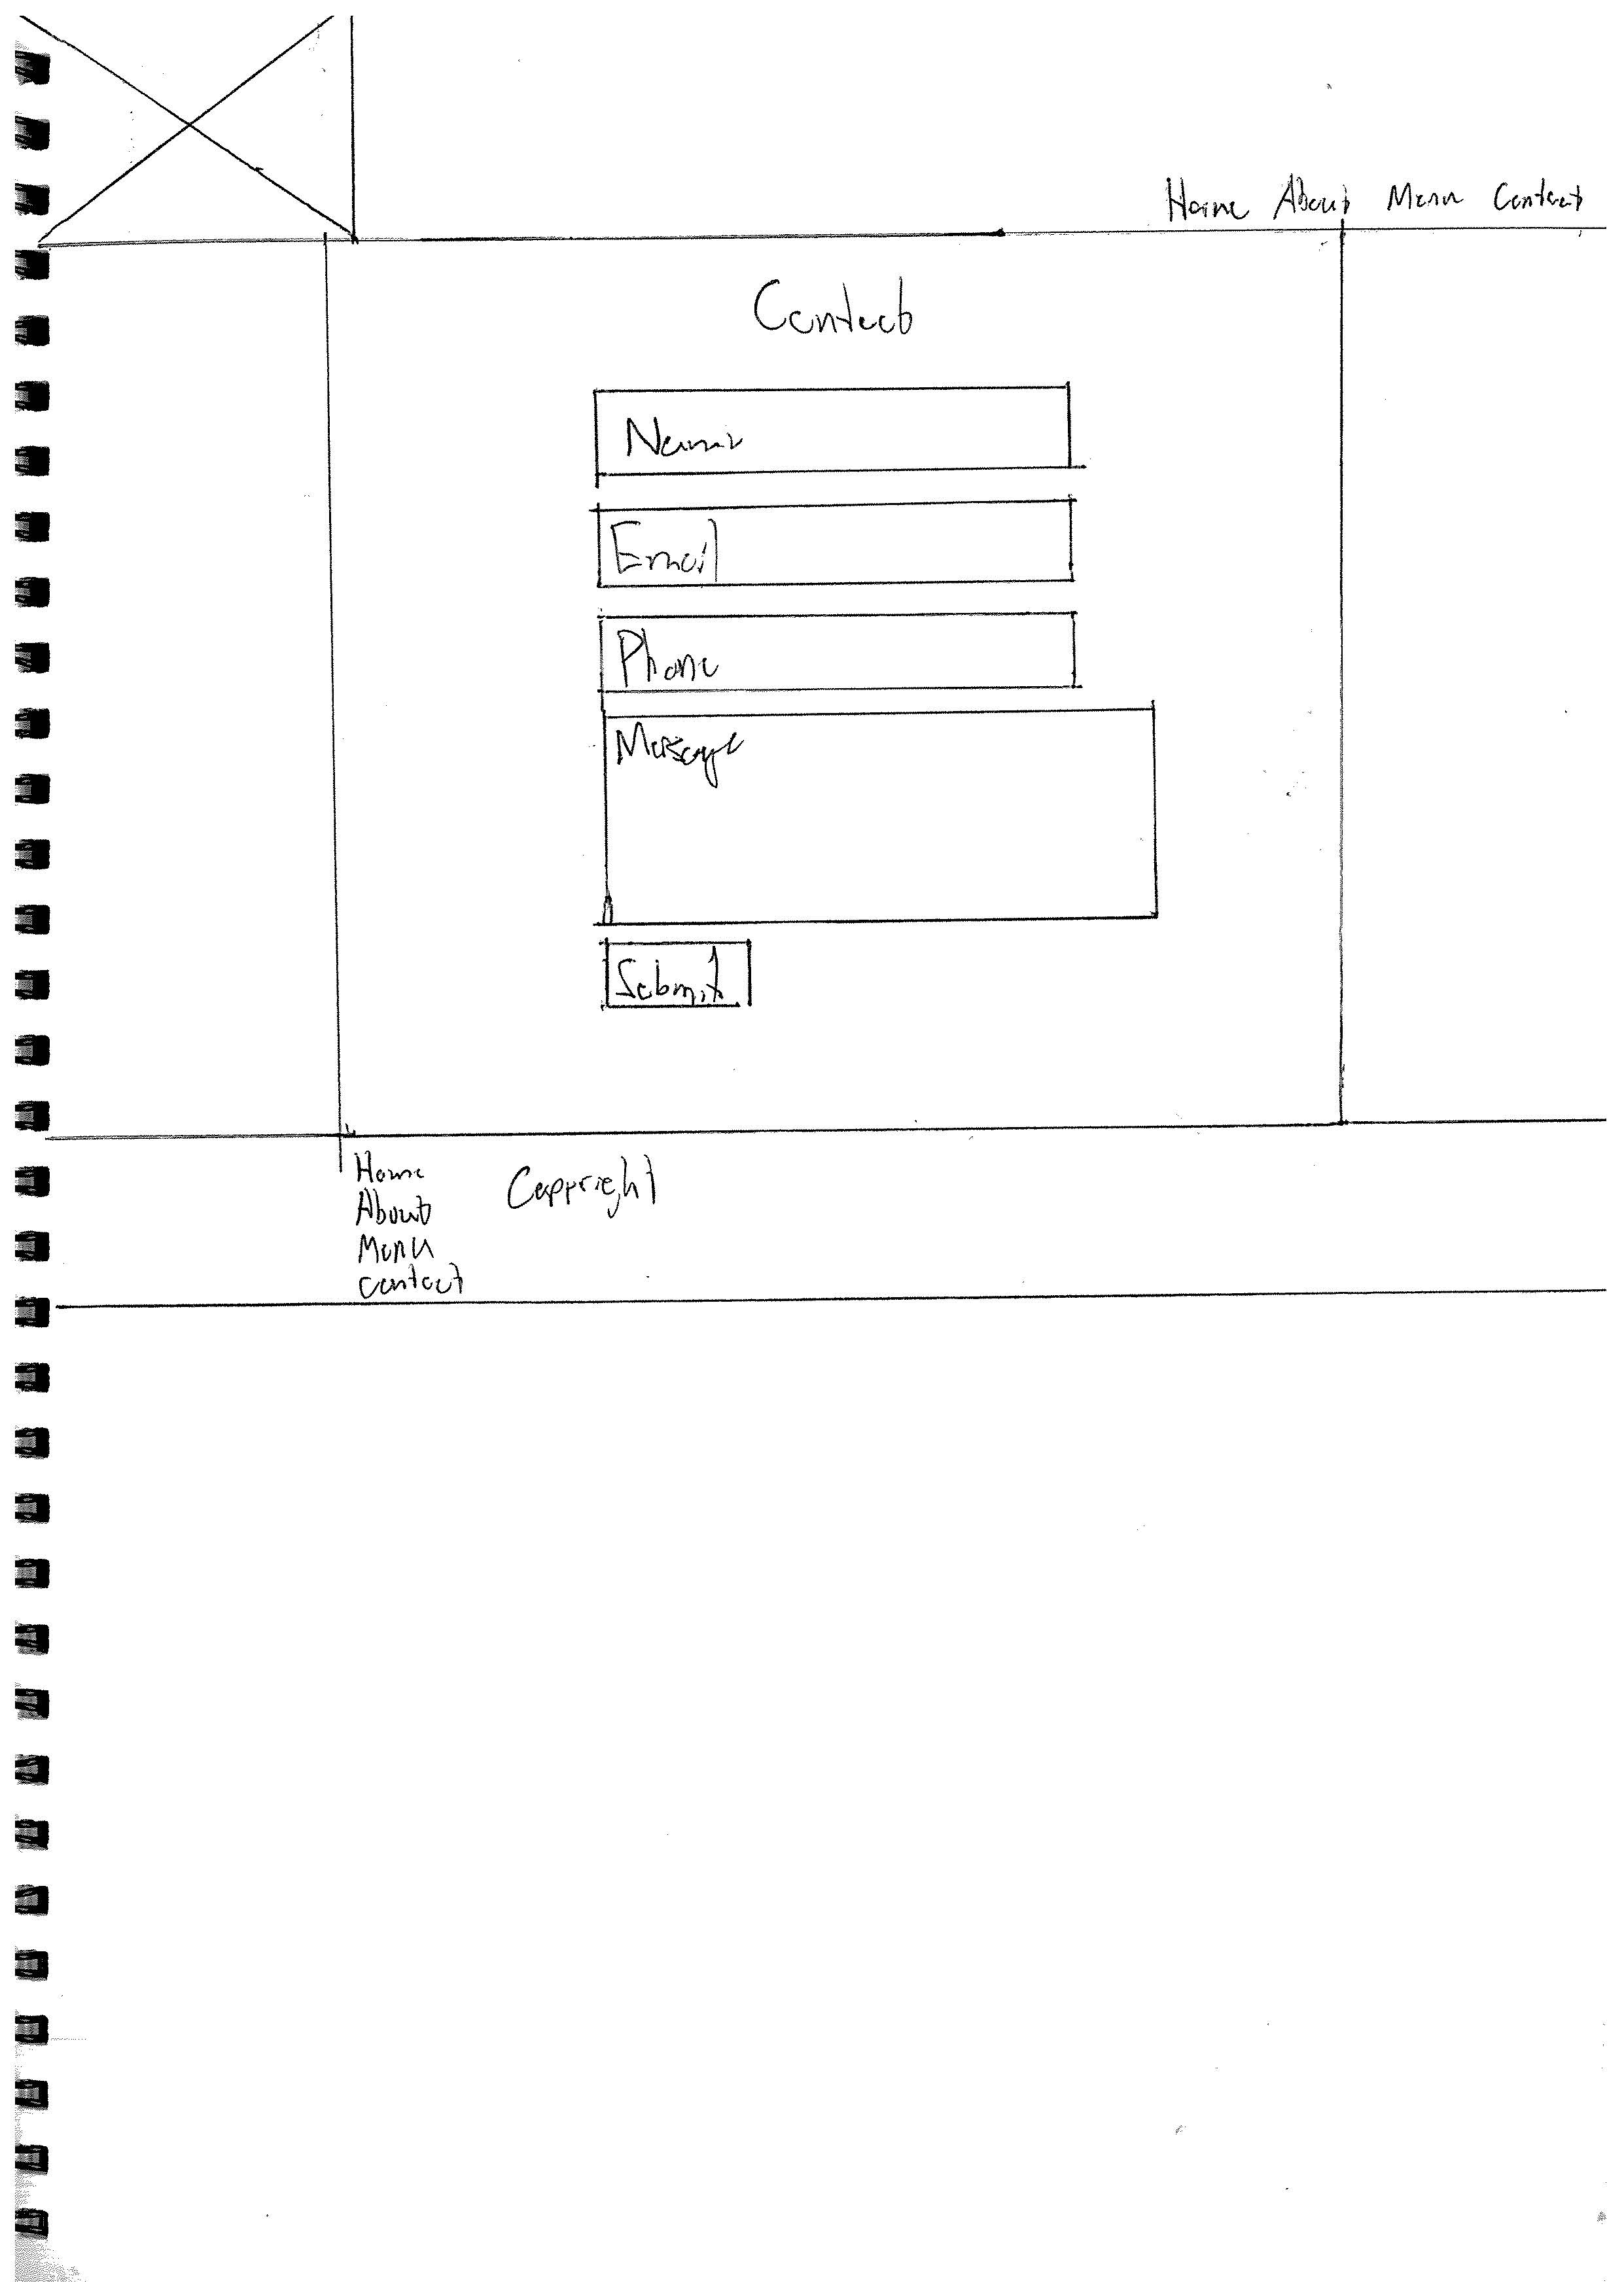 Home About Menu Contact
Contact
Name
Email
Phone
Message
Submit
Home
About
Menu
Contact
Copyright